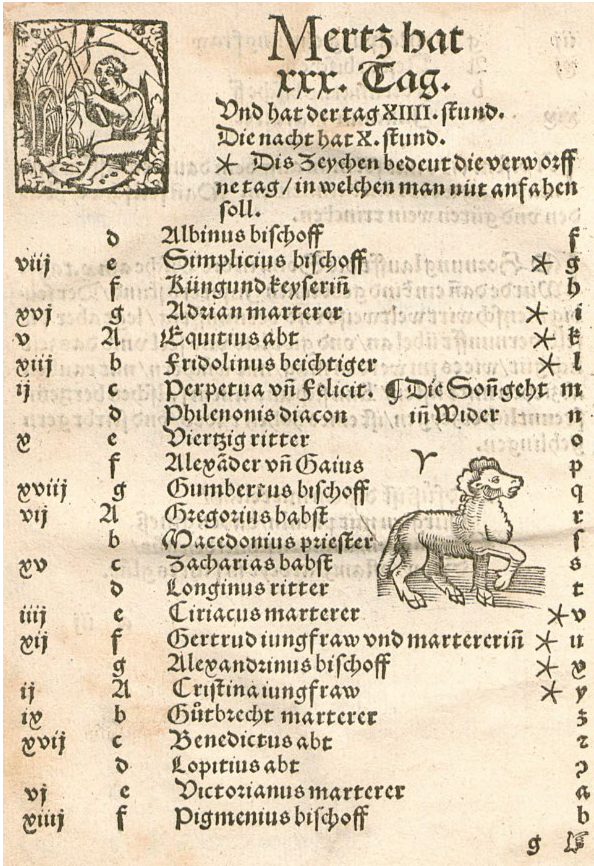 Mertz hat
xxx. Tag.
Vnd hat der tag XIIII. stund.
Die nacht hat X. stund.
* Dis Zeychen bedeut die verworff
ne tag / in welchen man nüt anfahen
soll.
d Albinus bischoff f
viij e Simplicius bischoff * g
f Küngund keyseriñ h
xvj g Adrian marterer * i
v A Equitius abt * k
xiij b Fridolinus beichtiger * l
ij c Perpetua vñ Felicit. ¶ Die Soñ geht m
d Philenonis diacon iñ Wider n
x e Viertzig ritter o
f Alexãder vñ Gaius ♈ p
xviij g Gumbertus bischoff q
vij A Gregorius babst r
b Macedonius priester ſ
xv c Zacharias babst s
d Longinus ritter t
iiij e Ciriacus marterer * v
xij f Gertrud iungfraw vnd martereriñ * u
g Alexandrinus bischoff * x
ij A Cristina iungfraw * y
ix b Gůtbrecht marterer z
xvij c Benedictus abt ꝛ
d Lopitius abt ꝯ
vj e Victorianus marterer a
xiiij f Pigmenius bischoff b
g ☞